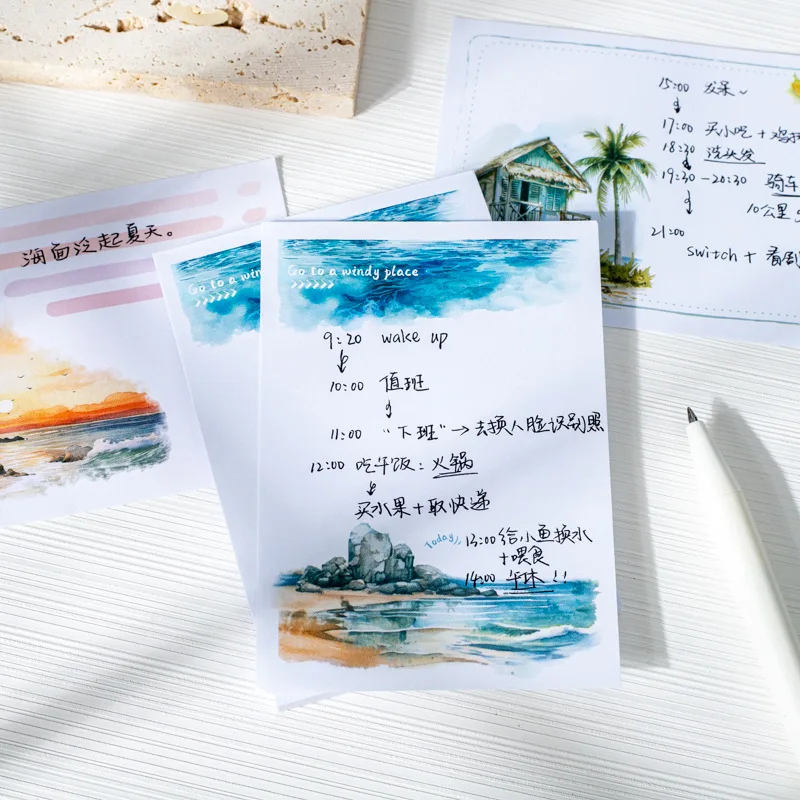 海面泛起夏天。
Go to a win
>>>>>>
Go to a windy place
>>>>>>
9:20 wake up
10:00 值班
11:00 “下班”→去换人脸识别照
12:00 吃午饭:火锅
买水果+取快递
Today,,
13:00 给小鱼换水
+喂食
14:00 午休!!
15:00 发呆~
17:00 买小吃+鸡
18:30 洗头发
19:30-20:30 骑车
10公里
21:00
switch+看剧